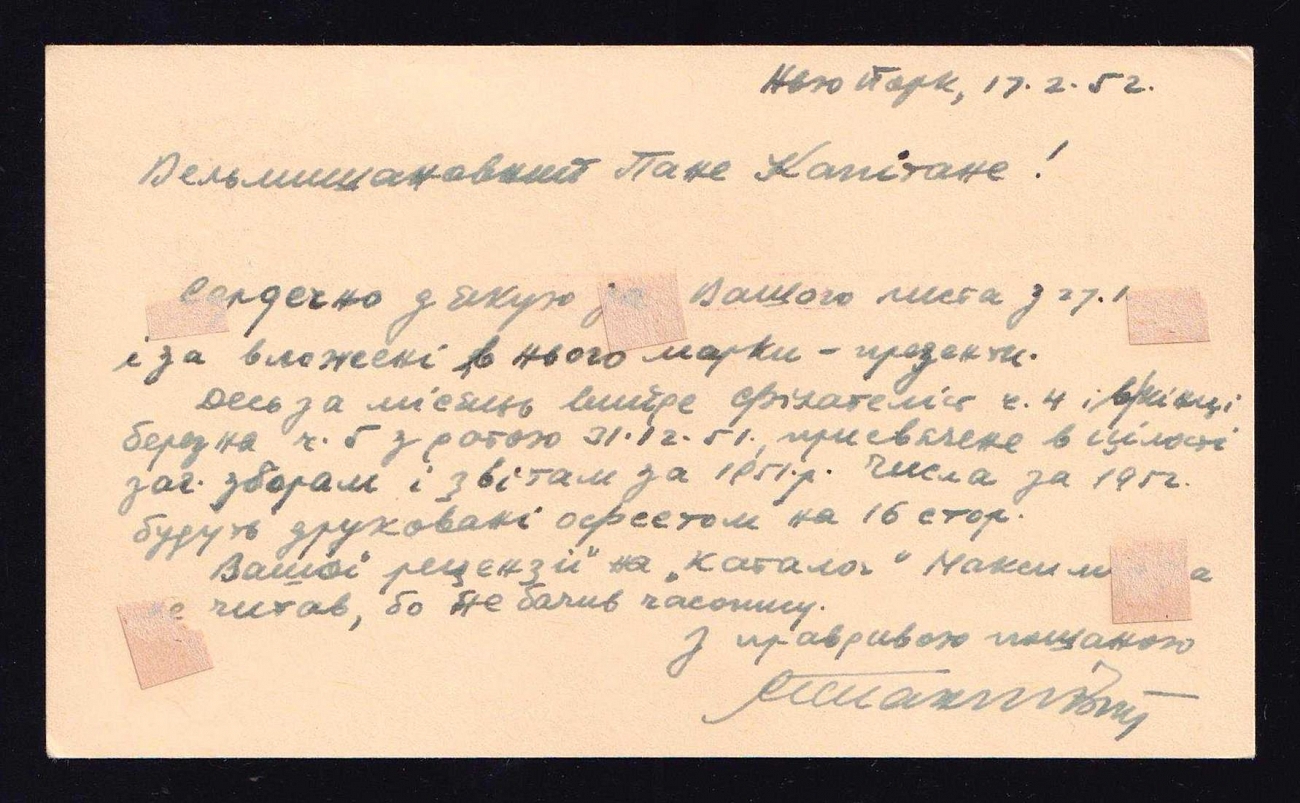 Нью Йорк, 17.2.52.
Вельмишановний Пане Капітане!
Сердечно дякую за Вашого листа з 27.1
і за вложені в нього марки – презенти.
Десь за місяць вийде Філателіст ч. 4 і в кінці
березня ч. 5 з датою 31.12.51, присвячене в цілості
заг. зборам і звітам за 1951.р. Числа за 1952.
будуть друковані офсетом на 16 стор.
Вашої рецензії на „Каталог"
не читав, бо не бачив часопису.
З правдивою пошаною